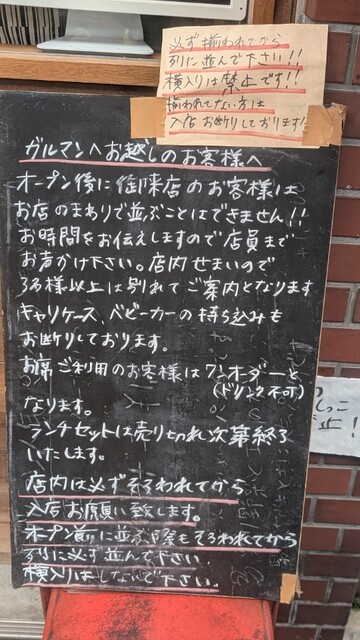 必ず揃われてから
列に並んで下さい!!
横入りは禁止です!!
揃われてない方は
入店お断りしております!
ガルマンへお越しのお客様へ
オープン後に御来店のお客様は
お店のまわりで並ぶことはできません!!
お時間をお伝えしますので店員まで
お声かけ下さい。店内せまいので
3名様以上は別れてご案内となります
キャリケース、ベビーカーの持ち込みも
お断りしております。
お席ご利用のお客様は1人1オーダーと
(ドリンク不可)
なります。
ランチセットは売り切れ次第終了
いたします。
店内は必ずそろわれてから
入店お願い致します。
オープン前に並ぶ際もそろわれてから
列に必ず並んで下さい。
横入りはしないで下さい。